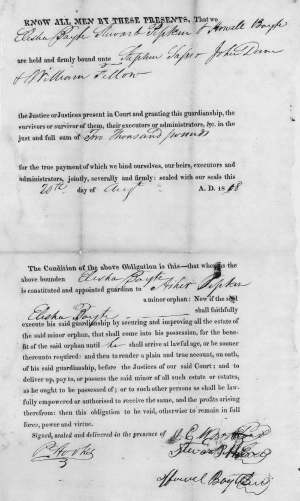 KNOW ALL MEN BY THESE PRESENTS, That we
Elisha Boyt Stewart Pipkin & Howell Boyt
are held and firmly bound unto
John
& William
the Justice or Justices present in Court and granting this guardianship, the
survivors or survivor of them, their executors or administrators, &c. in the
just and full sum of Two Thousand pounds
for the true payment of which we bind ourselves, our heirs, executors and
administrators, jointly, severally and firmly: sealed with our seals this
20th day of Augt A. D. 18
The Condition of the above Obligation is this—that whereas the
above bounden Elisha Boyt
is constituted and appointed guardian to Pipkin
a minor orphan: Now if the said
Elisha Boyt shall faithfully
execute his said guardianship by securing and improving all the estate of
the said minor orphan, that shall come into his possession, for the bene-
fit of the said orphan until he shall arrive at lawful age, or be sooner
thereunto required: and then to render a plain and true account, on oath,
of his said guardianship, before the Justices of our said Court; and to
deliver up, pay to, or possess the said minor of all such estate or estates,
as he ought to be possessed of; or to such other persons as shall be law-
fully empowered or authorised to receive the same, and the profits arising
therefrom: then this obligation to be void, otherwise to remain in full
force, power and virtue.
Signed, sealed and delivered in the presence of